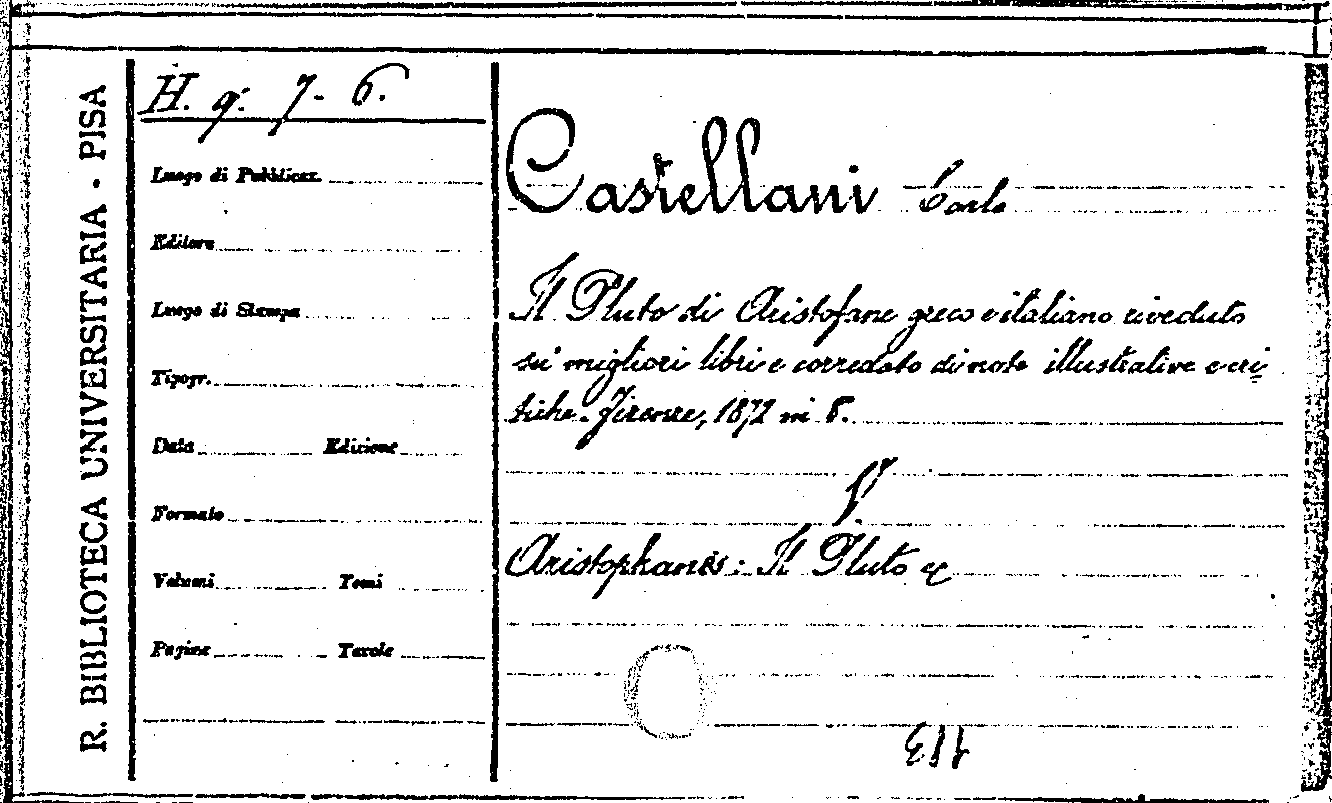 R. BIBLIOTECA UNIVERSITARIA - PISA
H. q. 7. 6.
Luogo di Pubblicaz.
Editore
Luogo di Stampa
Tipogr.
Data Edizione
Formato
Volumi Tomi
Pagine Tavole
Castellani Carlo
Il Pluto di Aristofane greco e italiano riveduto
su' migliori libri e corredato di note illustrative e cri-
tiche. Firenze, 1872 in 8.
V.
Aristophanes: Il Pluto &c
113